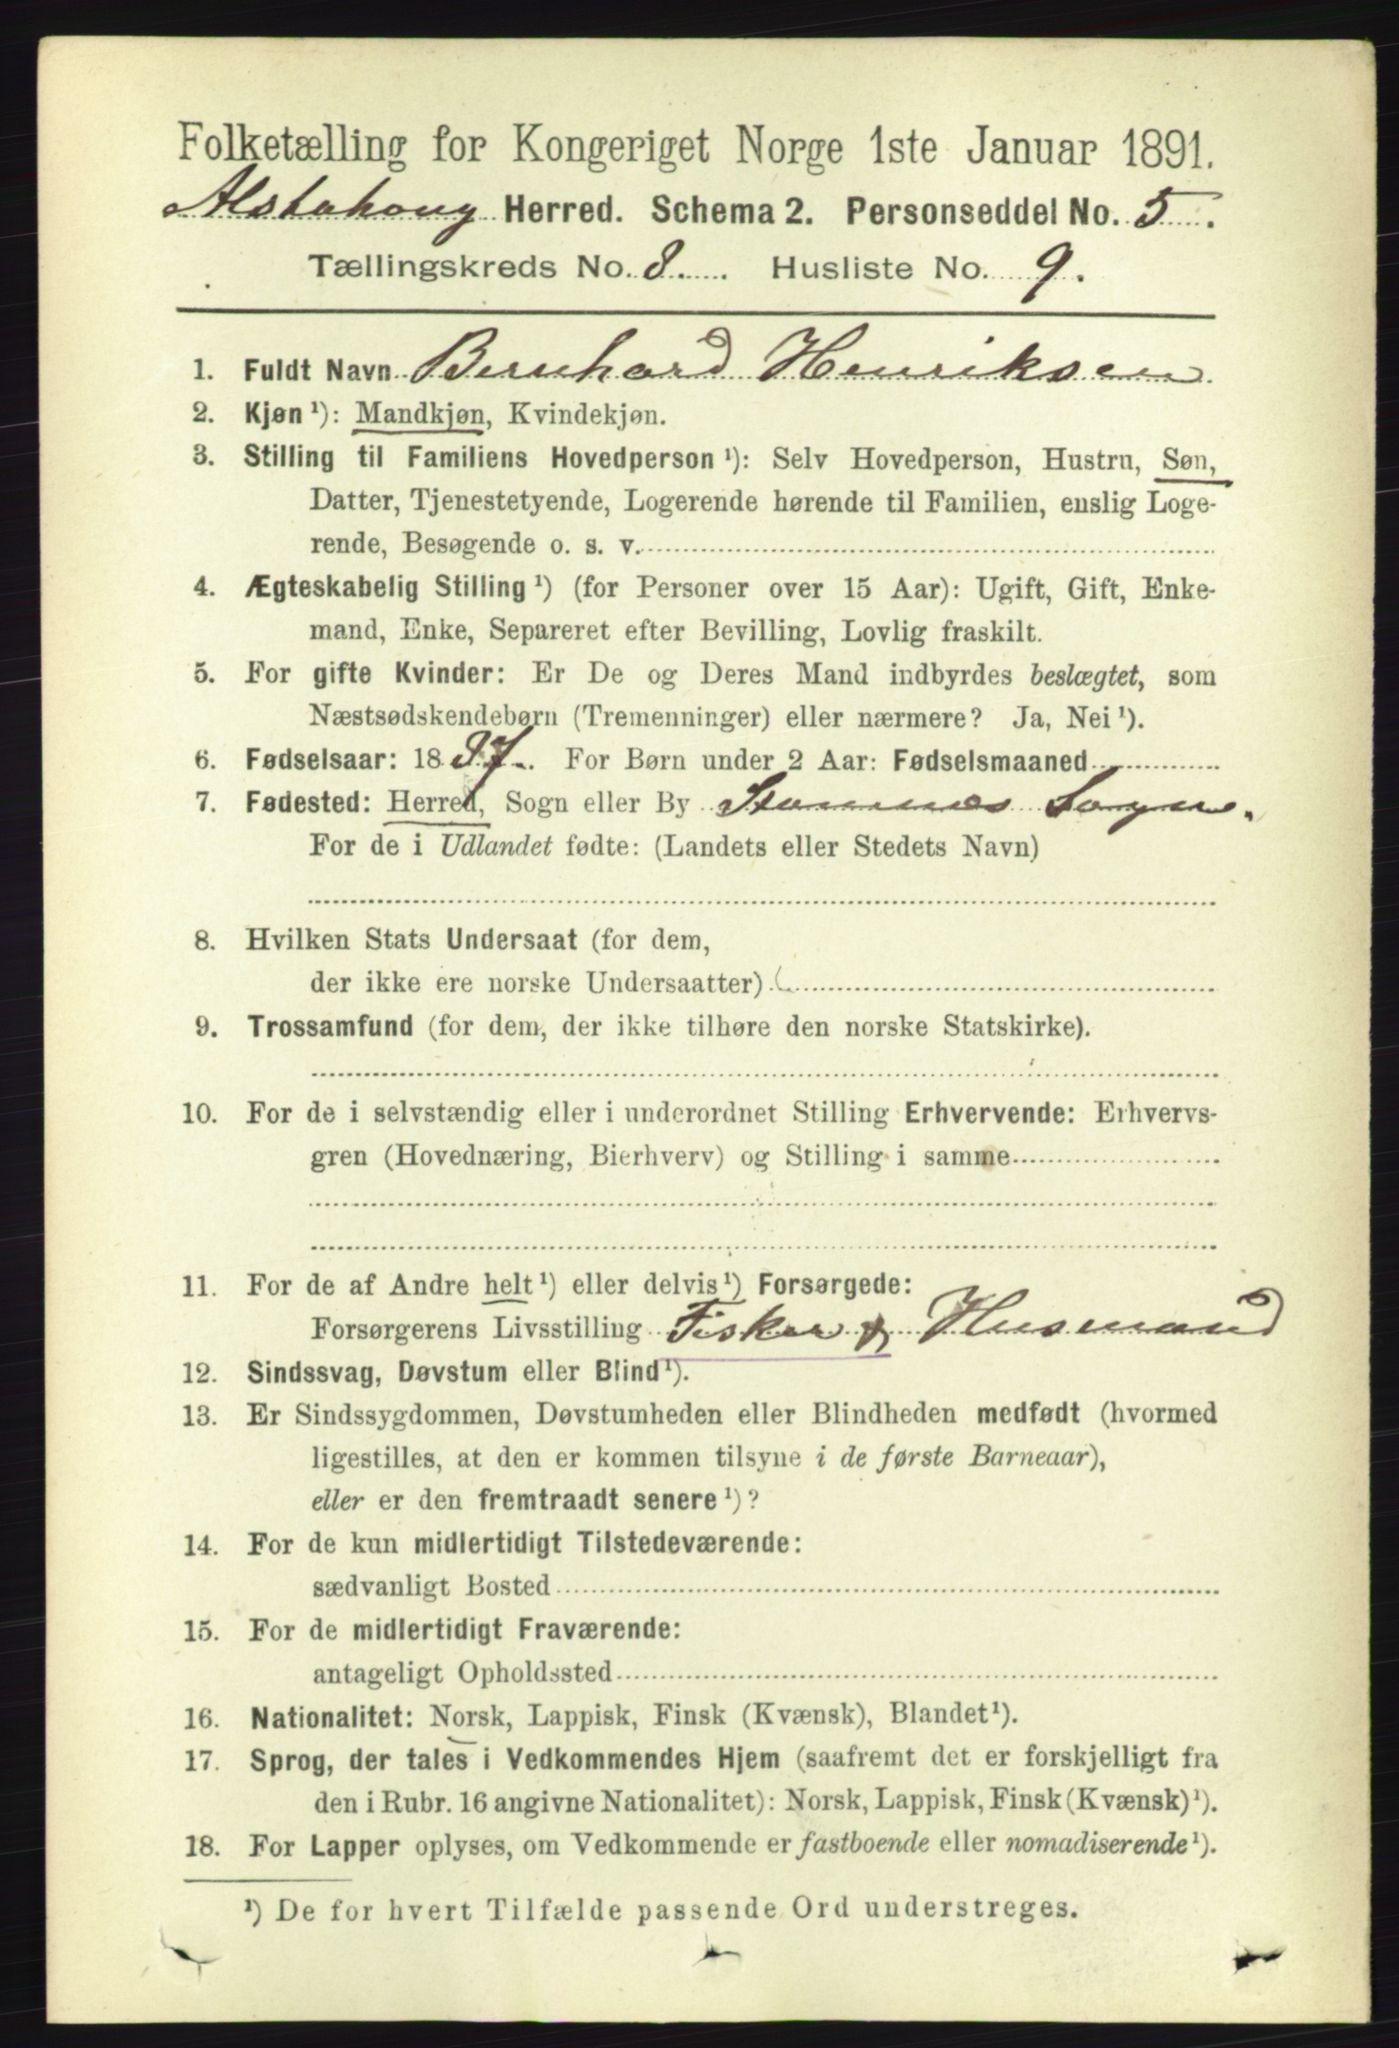 Folketælling for Kongeriget Norge 1ste Januar 1891.
Alstahoug Herred. Schema 2. Personseddel No. 5.
Tællingskreds No. 8. Husliste No. 9.
1. Fuldt Navn Bernhard Henriksen
2. Kjøn¹): Mandkjøn, Kvindekjøn.
3. Stilling til Familiens Hovedperson¹): Selv Hovedperson, Hustru, Søn,
Datter, Tjenestetyende, Logerende hørende til Familien, enslig Loge-
rende, Besøgende o. s. v.
4. Ægteskabelig Stilling¹) (for Personer over 15 Aar): Ugift, Gift, Enke-
mand, Enke, Separeret efter Bevilling, Lovlig fraskilt.
5. For gifte Kvinder: Er De og Deres Mand indbyrdes beslægtet, som
Næstsødskendebørn (Tremenninger) eller nærmere? Ja, Nei¹).
6. Fødselsaar: 1887. For Børn under 2 Aar: Fødselsmaaned
7. Fødested: Herred, Sogn eller By Stamnes Sogn.
For de i Udlandet fødte: (Landets eller Stedets Navn)
8. Hvilken Stats Undersaat (for dem,
der ikke ere norske Undersaatter)
9. Trossamfund (for dem, der ikke tilhøre den norske Statskirke).
10. For de i selvstændig eller i underordnet Stilling Erhvervende: Erhvervs-
gren (Hovednæring, Bierhverv) og Stilling i samme
11. For de af Andre helt¹) eller delvis¹) Forsørgede:
Forsørgerens Livsstilling Fisker & Husmand
12. Sindssvag, Døvstum eller Blind¹).
13. Er Sindssygdommen, Døvstumheden eller Blindheden medfødt (hvormed
ligestilles, at den er kommen tilsyne i de første Barneaar),
eller er den fremtraadt senere¹)?
14. For de kun midlertidigt Tilstedeværende:
sædvanligt Bosted
15. For de midlertidigt Fraværende:
antageligt Opholdssted
16. Nationalitet: Norsk, Lappisk, Finsk (Kvænsk), Blandet¹).
17. Sprog, der tales i Vedkommendes Hjem (saafremt det er forskjelligt fra
den i Rubr. 16 angivne Nationalitet): Norsk, Lappisk, Finsk (Kvænsk)¹).
18. For Lapper oplyses, om Vedkommende er fastboende eller nomadiserende¹).
¹) De for hvert Tilfælde passende Ord understreges.